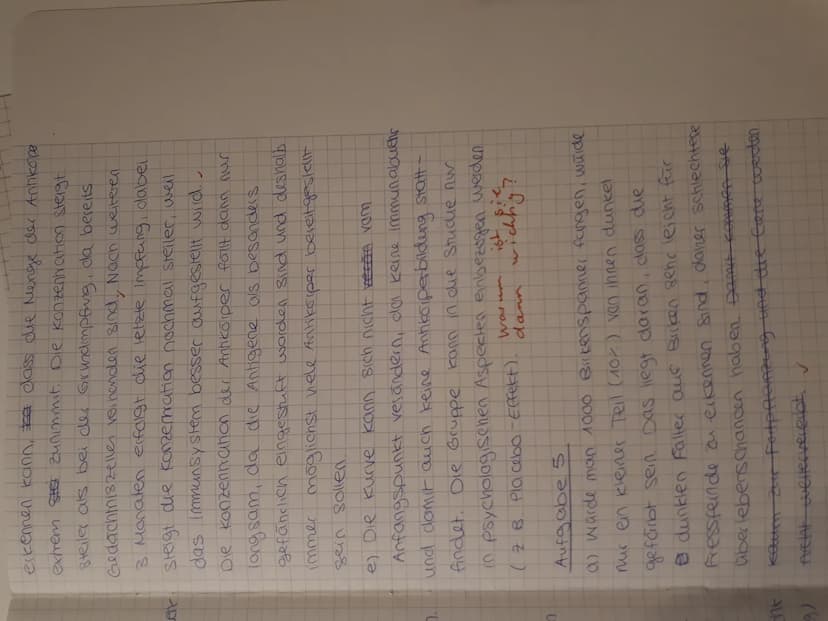 erkennen kann, dass die Menge der Antikörper
extrem zunimmt. Die Konzentration steigt
steiler als bei der Grundimpfung, da bereits
Gedächtniszellen vorhanden sind. Nach weiteren
3 Monaten erfolgt die letzte Impfung, dabei
steigt die Konzentration nochmal steiler, weil
das Immunsystem besser aufgestellt wird.
Die Konzentration der Antikörper fällt dann nur
langsam, da die Antigene als besonders
gefährlich eingestuft worden sind und deshalb
immer möglichst viele Antikörper bereitgestellt
sein sollen
e) Die Kurve kann sich nicht vom
Anfangspunkt verändern, da keine Immunabwehr
und damit auch keine Antikörperbildung statt-
findet. Die Gruppe kann in die Studie nur
in psychologischen Aspekten einbezogen werden
(z.B. Placebo-Effekt).
warum ist sie
dann wichtig?
Aufgabe 5
a) Würde man 1000 Birkenspanner fangen, würde
nur ein kleiner Teil (10%) von ihnen dunkel
gefärbt sein. Das liegt daran, dass die
dunklen Falter auf Birken sehr leicht für
Fressfeinde zu erkennen sind, daher schlechtere
Überlebenschancen haben. Damit kommen sie
kaum zur Fortpflanzung und die Gene werden
nicht weitervererbt